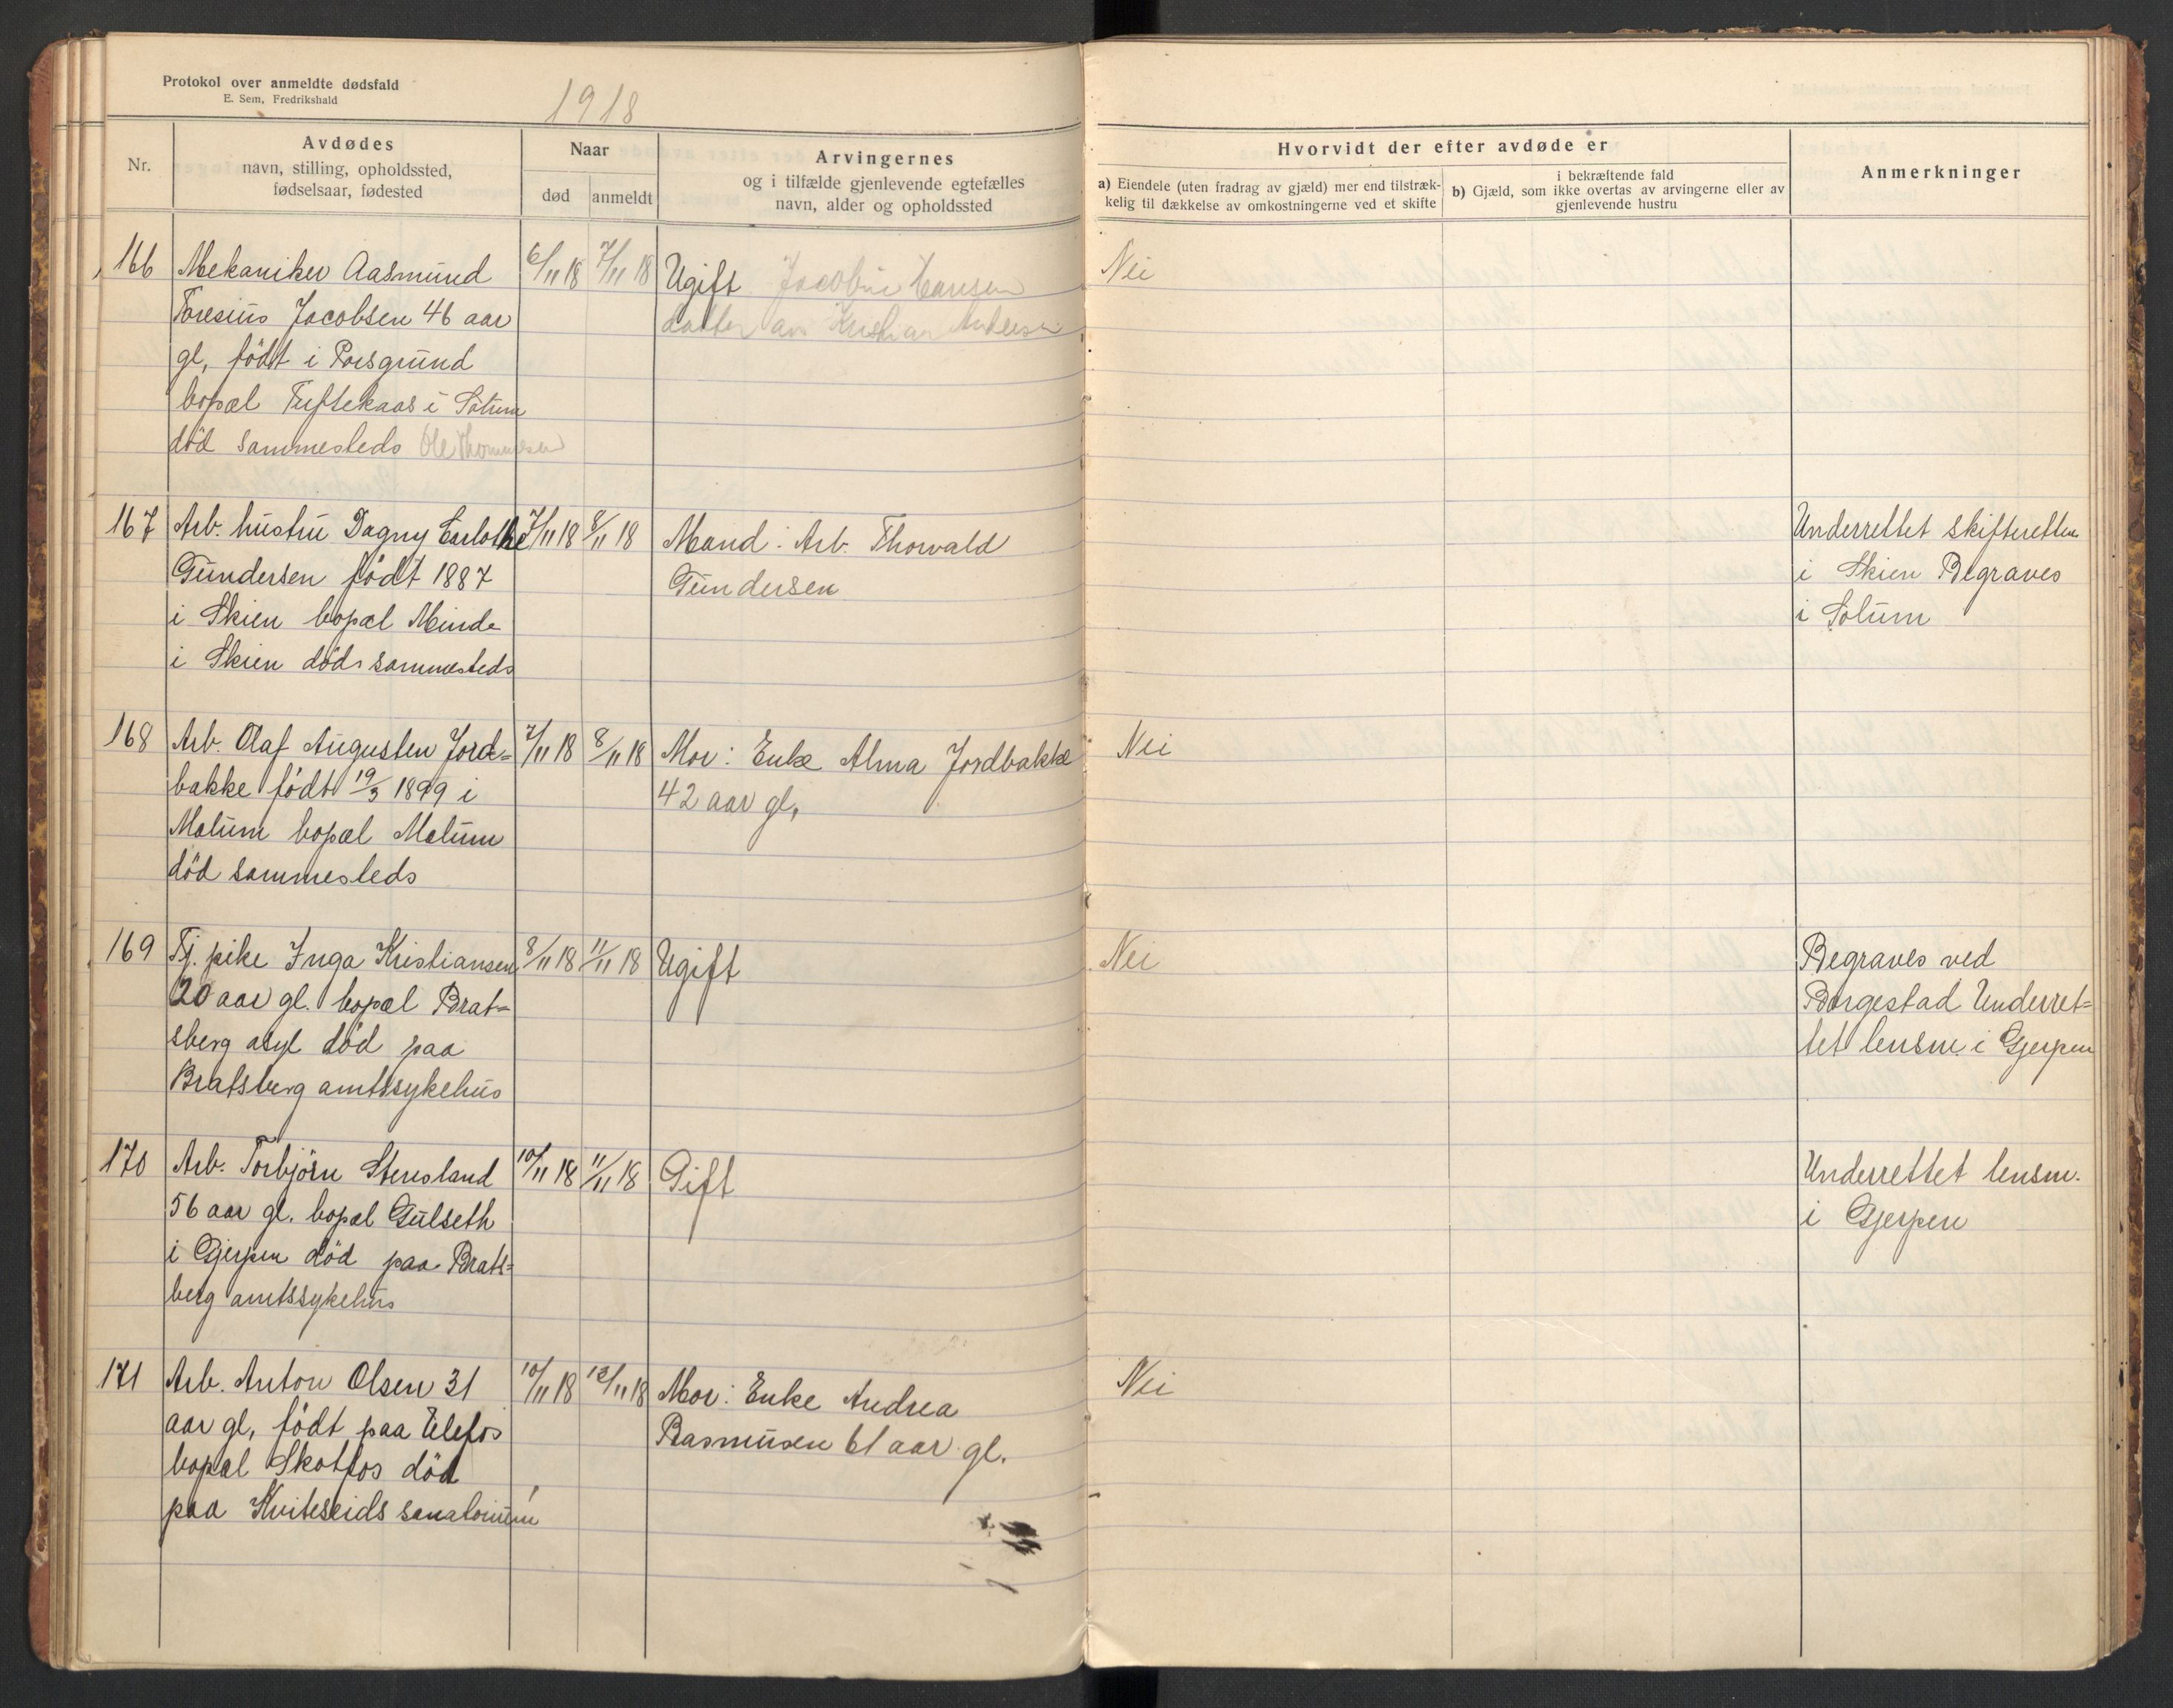 Protokol over anmeldte dødsfald
E. Sem, Fredrikshald
1918
Nr.
Avdødes
navn, stilling, opholdssted,
fødselsaar, fødested
Naar
død
anmeldt
Arvingernes
og i tilfælde gjenlevende egtefælles
navn, alder og opholdssted
Hvorvidt der efter avdøde er
a) Eiendele (uten fradrag av gjæld) mer end tilstræk-
kelig til dækkelse av omkostningerne ved et skifte
i bekræftende fald
b) Gjæld, som ikke overtas av arvingerne eller av
gjenlevende hustru
Anmerkninger
166 Mekaniker Aasmund 6/11 18 7/11 18 Ugift Jacobine Hansen Nei
Toresius Jacobsen 46 aar datter av Kristian Andersen
gl, födt i Porsgrund
bopæl Tuftekaas i Solum
död sammesteds Ole Thommesen
167 Arb. hustru Dagny Carlothe 7/11 18 8/11 18 Mand: Arb. Thorvald Underrettet skifteretten
Gundersen födt 1887 Gundersen i Skien Begraves
i Skien bopæl Minde i Solum
i Skien död sammesteds
168 Arb. Olaf Augusten Jord= 7/11 18 8/11 18 Mor: Enke Alma Jordbakke Nei
bakke födt 19/3 1899 i 42 aar gl,
Melum bopæl Melum
död sammesteds
169 Tj. pike Inga Kristiansen 8/11 18 11/11 18 Ugift Nei Begraves ved
20 aar gl. bopæl Brat= Borgestad Underret=
sberg asyl död paa tet lensm. i Gjerpen
Bratsberg amtssykehus
170 Arb. Torbjörn Stensland 10/11 18 11/11 18 Gift Underrettet lensm.
56 aar gl. bopæl Gulseth i Gjerpen
i Gjerpen död paa Brats=
berg amtssykehus
171 Arb. Anton Olsen 31 10/11 18 12/11 18 Mor: Enke Andrea Nei
aar gl, födt paa Ulefos Rasmusen 61 aar gl.
bopæl Skotfos död
paa Kviteseids sanatorium